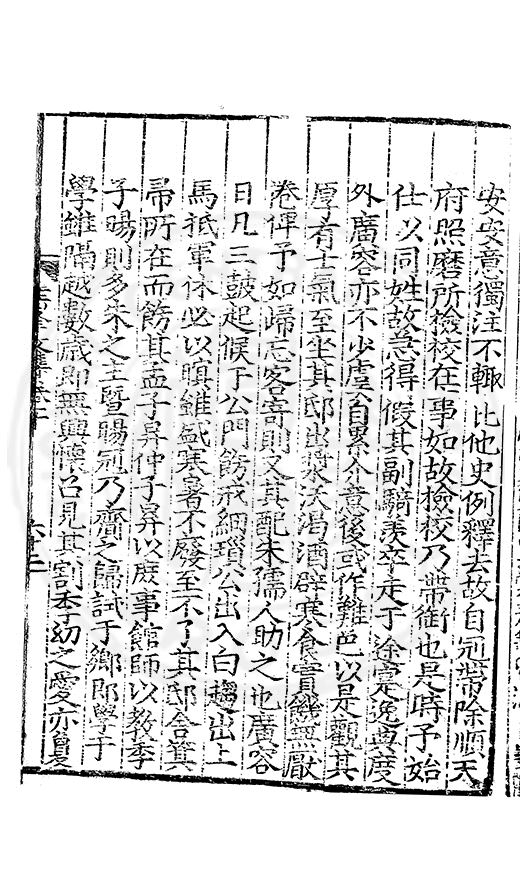 安安意獨注不輙比他史例釋去故自冠帶除順天
府照磨所撿校在事如故撿校乃帶銜也是時予始
仕以同姓故急得假其副騎羨卒走于途寔逸與度
外廣容亦不少虞自累介意後或作難色以是觀其
厚有士氣至坐其邸出漿沃渴酒辟寒食實饑無厭
惓俾予如歸忘客寄則又其配朱孺人助之也廣容
日凡三鼓起候于公門飭戒細瑣公出入白趨出上
馬抵軍休必以瞋雖盛寒暑不廢至不了其邸舍箕
帚所在而飭其孟子昇仲子昇以庶事館師以教季
子暘則多朱之主暨暘冠乃齎之歸試于鄉即學于
學雖隔越數歲即無興懷召見其割季幼之愛亦夐